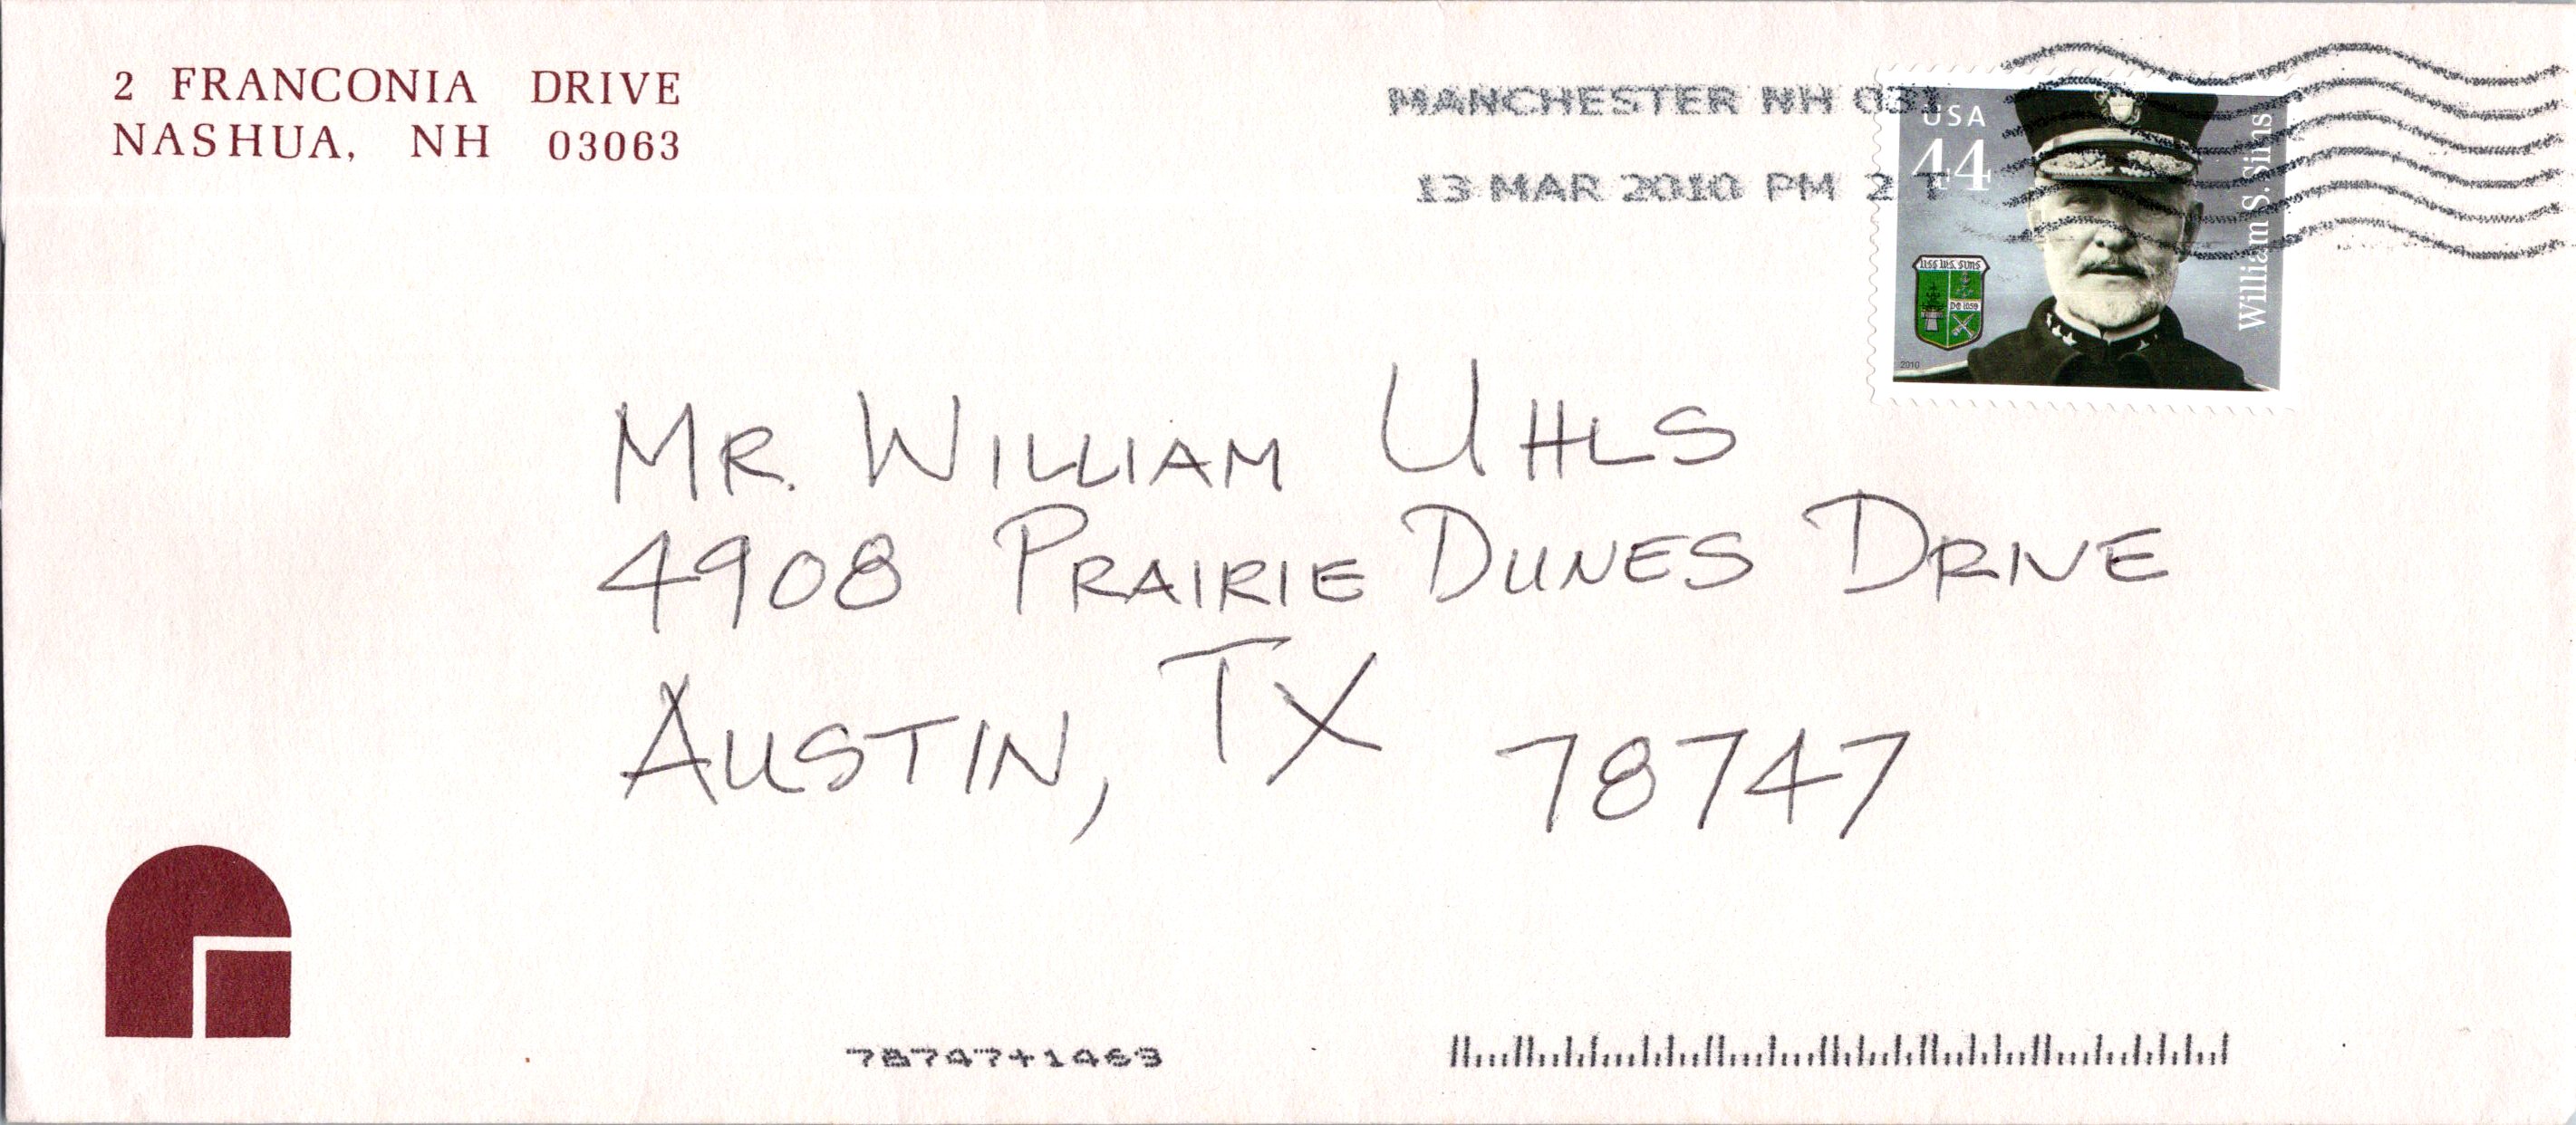 2 FRANCONIA DRIVE
NASHUA, NH 03063
MANCHESTER NH 031
13 MAR 2010 PM 2 T
USA
44
William S. Sims
USS W.S. SIMS
DE 1059
2010
MR. WILLIAM UHLS
4908 PRAIRIE DUNES DRIVE
AUSTIN, TX 78747
78747+1463